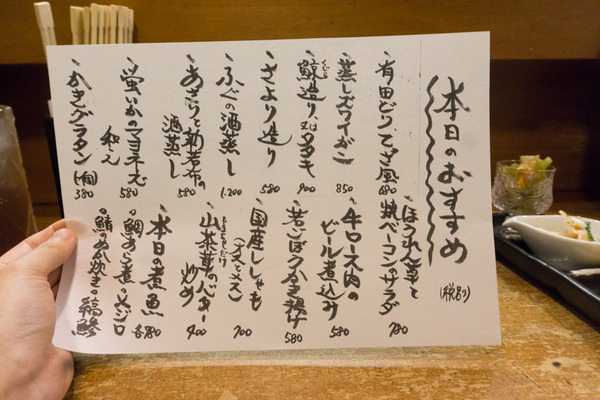 本日のおすすめ
(税別)
有田どりてっさ風 680
蒸しズワイガニ 850
鯨造り、又はタタキ 900
くじら
さより造り 580
ふぐの酒蒸し 1,200
あさりと新若布の
酒蒸し 580
螢いかのマヨネーズ
和え 580
かきグラタン(1個) 380
ほうれん草と
焼ベーコンのサラダ 780
牛ロース肉の
ビール煮込み 580
若ごぼうかき揚げ 580
国産ししゃも
(オスとメス) 700
山茶茸のバター
炒め
本日の煮魚 各780
鯛あら煮。メジロ
鯖のぬか炊き。縞鯵